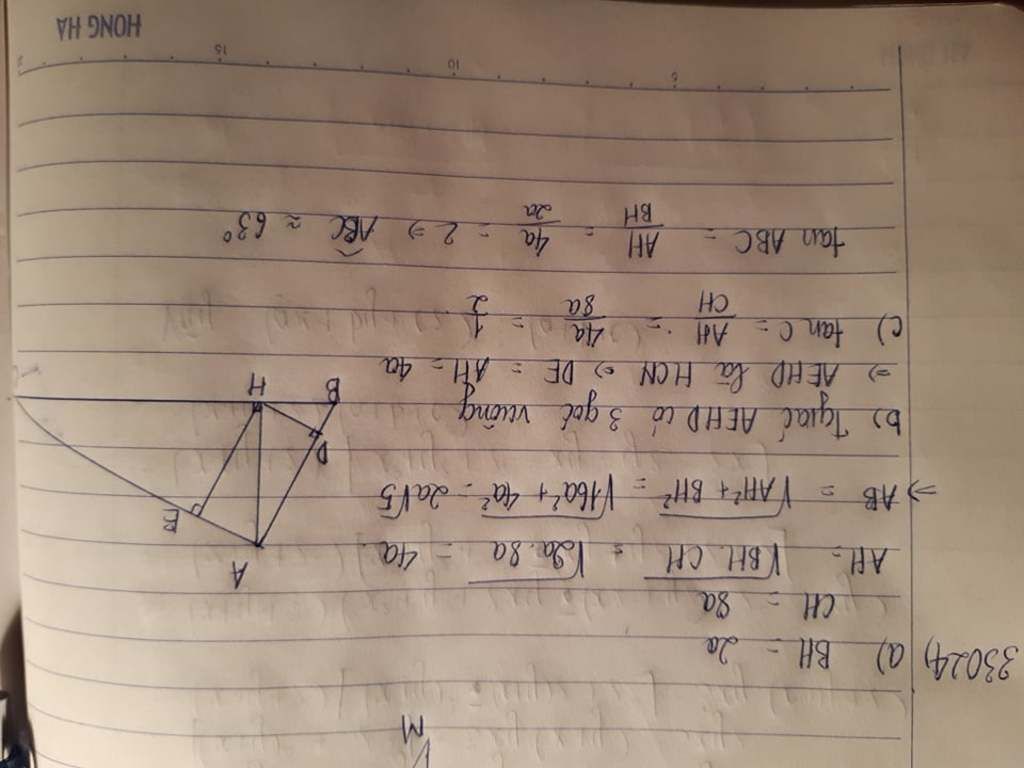 M
33024) a) BH = 2a
CH = 8a
AH = √BH.CH = √2a.8a = 4a
⇒ AB = √AH²+BH² = √16a²+4a² = 2a√5
b) Tgiác AEHD có 3 góc vuông
⇒ AEHD là HCN ⇒ DE = AH = 4a
c) tan C = AH/CH = 4a/8a = 1/2
tan ABC = AH/BH = 4a/2a = 2 ⇒ ABC ≈ 63°
A
E
D
B
H
5 10 15
HONG HA